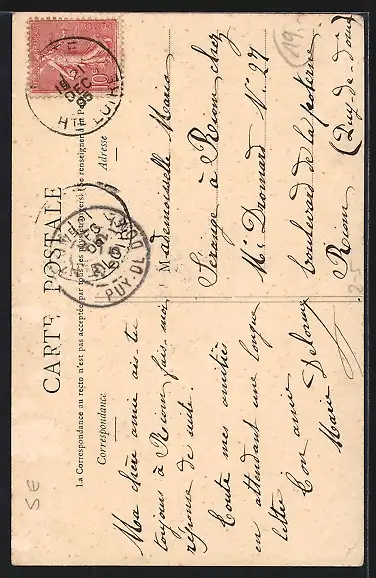 CARTE POSTALE
La Correspondance au recto n'est pas acceptée par tous les pays étrangers. (Se renseigner à la Poste)
Correspondance
Adresse
Ma chère amie ais-tu
toujours à Riom fais-moi
réponse de suite.
Toute mes amitiés
en attendant une longue
lettre Ton amie
Marie Delorme
Mademoiselle Marie
Serange à Riom chez
Mr Dromard No 27
boulevard de la poterne
Riom (Puy-de-Dôme)
21
DEC
05
HTE LOIRE
RIOM
PUY-DE-DOME
10
19.
5€